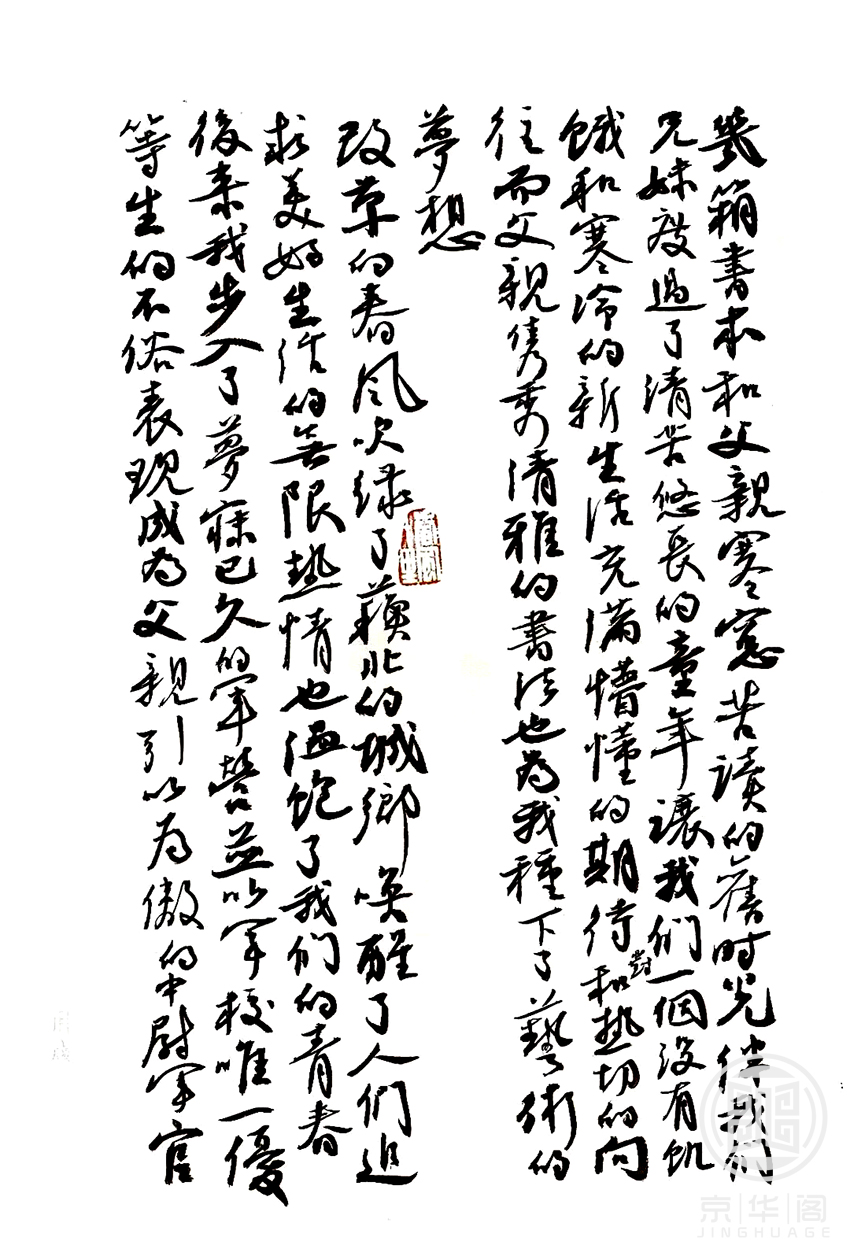 幾箱書本和父親寒窓苦讀的舊时光伴我们
兄妹度過了清苦悠長的童年讓我们一個没有飢
餓和寒冷的新生活充滿懵懂的期待和對热切的向
往而父親隽秀清雅的書法也為我種下了藝術的
夢想
改革的春風吹绿了蘇北的城鄉喚醒了人们追
求美好生活的無限熱情也温飽了我们的青春
後来我步入了夢寐已久的军營並以军校唯一優
等生的不俗表現成為父親引以为傲的中尉军官
京华阁
JINGHUAGE